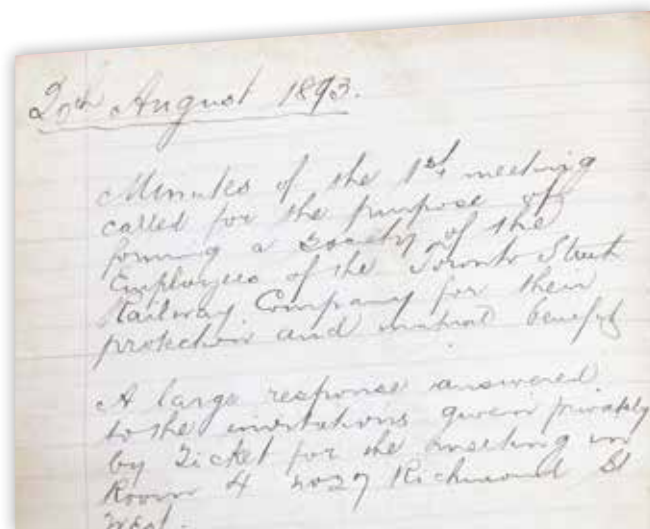 20th August 1893.
Minutes of the 1st meeting
called for the purpose of
forming a society of the
Employees of the Toronto Street
Railway Company for their
protection and mutual benefit
A large response answered
to the invitations given privately
by Ticket for the meeting in
Room 4 No 27 Richmond St
West.